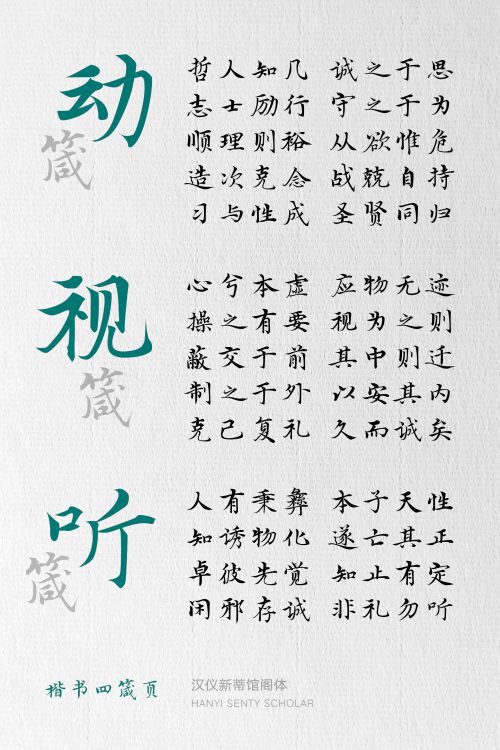 动
箴
哲人知几 诚之于思
志士励行 守之于为
顺理则裕 从欲惟危
造次克念 战兢自持
习与性成 圣贤同归
视
箴
心兮本虚 应物无迹
操之有要 视为之则
蔽交于前 其中则迁
制之于外 以安其内
克己复礼 久而诚矣
听
箴
人有秉彝 本子天性
知诱物化 遂亡其正
卓彼先觉 知止有定
闲邪存诚 非礼勿听
楷书四箴页
汉仪新蒂馆阁体
HANYI SENTY SCHOLAR